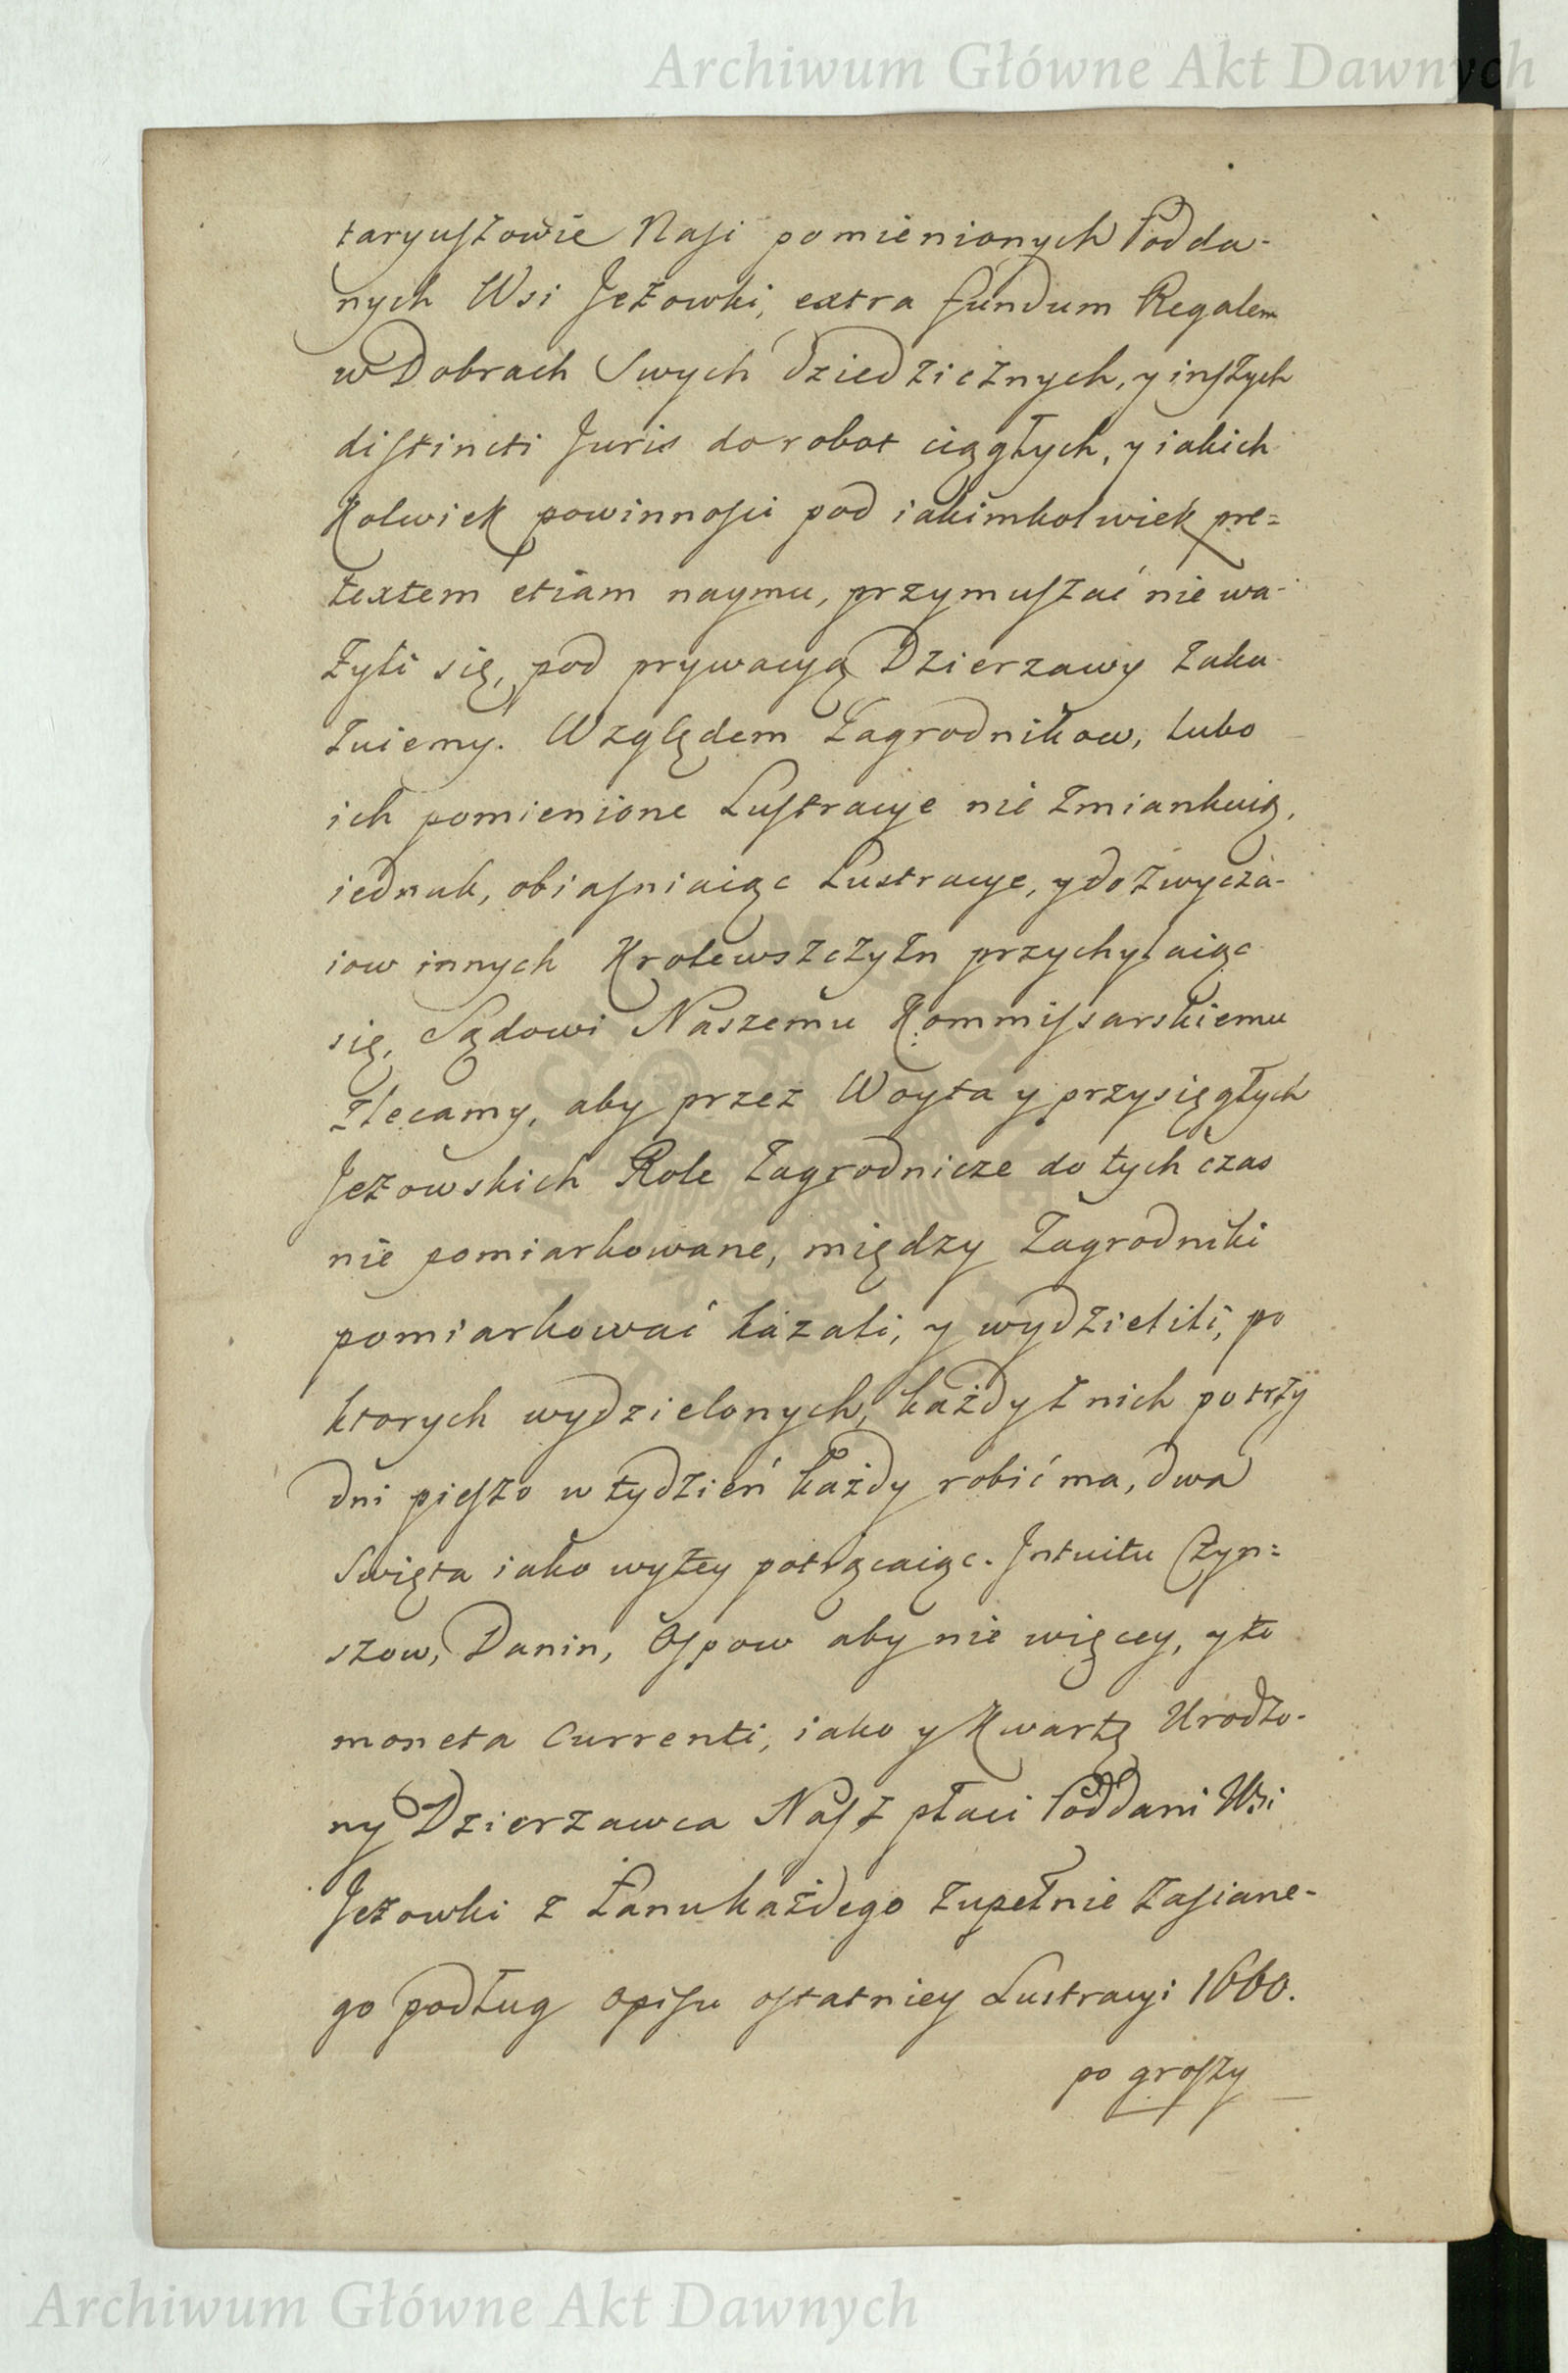 Archiwum Główne Akt Dawnych
taryuszowie Nasi pomienionych Podda-
nych Wsi Jeżowki, extra fundum Regalem
w Dobrach Swych dziedzicznych, y inszych
distincti Juris do robot ciągłych, y iakich
Kolwiek powinności pod iakimkolwiek pre=
textem etiam naymu, przymuszać nie wa-
żyli się, pod prywacyą Dzierzawy zaka-
zuiemy. Względem Zagrodnikow, lubo
ich pomienione Lustracye nie zmiankuią,
iednak, obiaśniaiąc Lustracye, y do zwycza-
iow innych Krolewszczyzn przychylaiąc
się, Sądowi Naszemu Kommissarskiemu
zlecamy, aby przez Woyta y przysięgłych
Jeżowskich Role Zagrodnicze do tych czas
nie pomiarkowane, między Zagrodniki
pomiarkować kazali, y wydzielili, po
ktorych wydzielonych, każdy z nich po trzy
dni pieszo w tydzień każdy robić ma, dwa
Swięta iako wyżey potrącaiąc. Intuitu Czyn=
szow, Danin, Ospow aby nie więcey, y to
moneta Currenti, iako y Kwartę Urodzo-
ny Dzierzawca Nasz płaci Poddani Wsi
Jeżowki z Łanu każdego zupełnie zasiane-
go podług opisu ostatniey Lustracyi 1660.
po groszy
Archiwum Główne Akt Dawnych